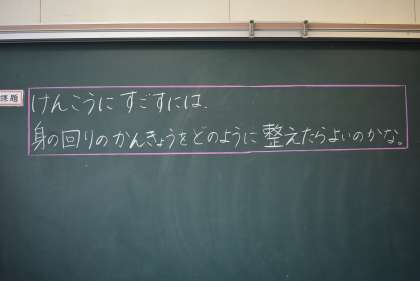 課題
けんこうに すごすには、
身の回りのかんきょうをどのように整えたらよいのかな。